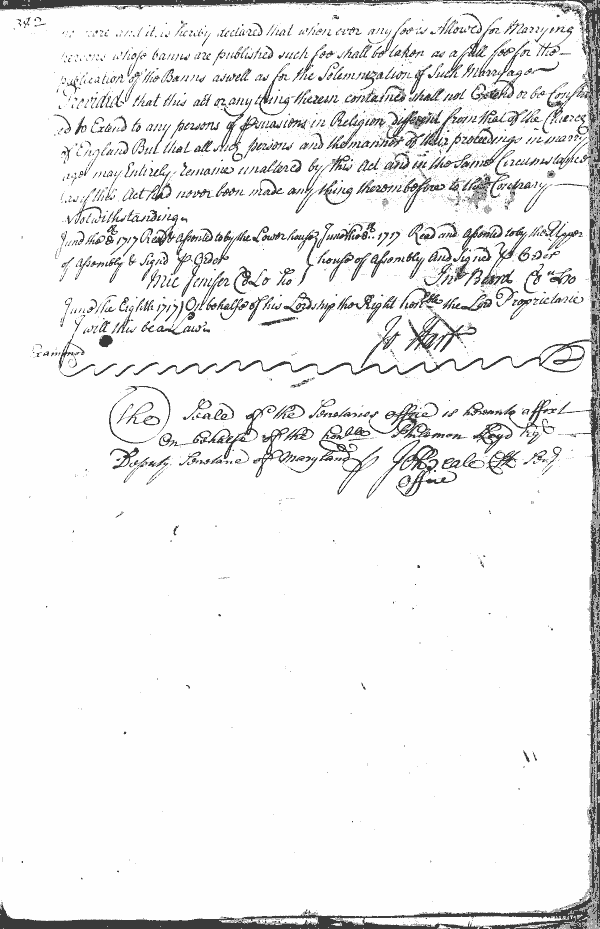 382
no more and it is hereby declared that when ever any fee is Allowed for Marrying
persons whose banns are published such fee shall be taken as a full fee for the
publication of the Banns aswell as for the Solemnization of Such Marryages
Provided that this act or any thing therein contained shall not Extend or be Constru
ed to Extend to any persons of perswasions in Religion different from that of the Church
of England But that all such persons and the manner of their proceedings in marry
ages may Entirely remaine unaltered by this Act and in the Same Circumstances
as if this Act had never been made any thing therein before to the Contrary
Notwithstanding
June the 8th 1717 Read & Assented to by the Lower house
of Assembly & Signd p Order
Mic Jenifer Cl Lo ho
June the 8th 1717 Read and Assented to by the Upper
house of Assembly and Signd p Order
Jno Beard Cl up ho
June the Eighth 1717 On behalfe of his Lordship the Right honble the Lord Proprietarie
I will this be a Law
Jo Hart
Examined
The Seale of the Secretaries office is hereunto affixt
On behalfe of the honble Philemon Lloyd Esqr
Deputy Secretarie of Maryland p Jo Beale Clk Secry
office